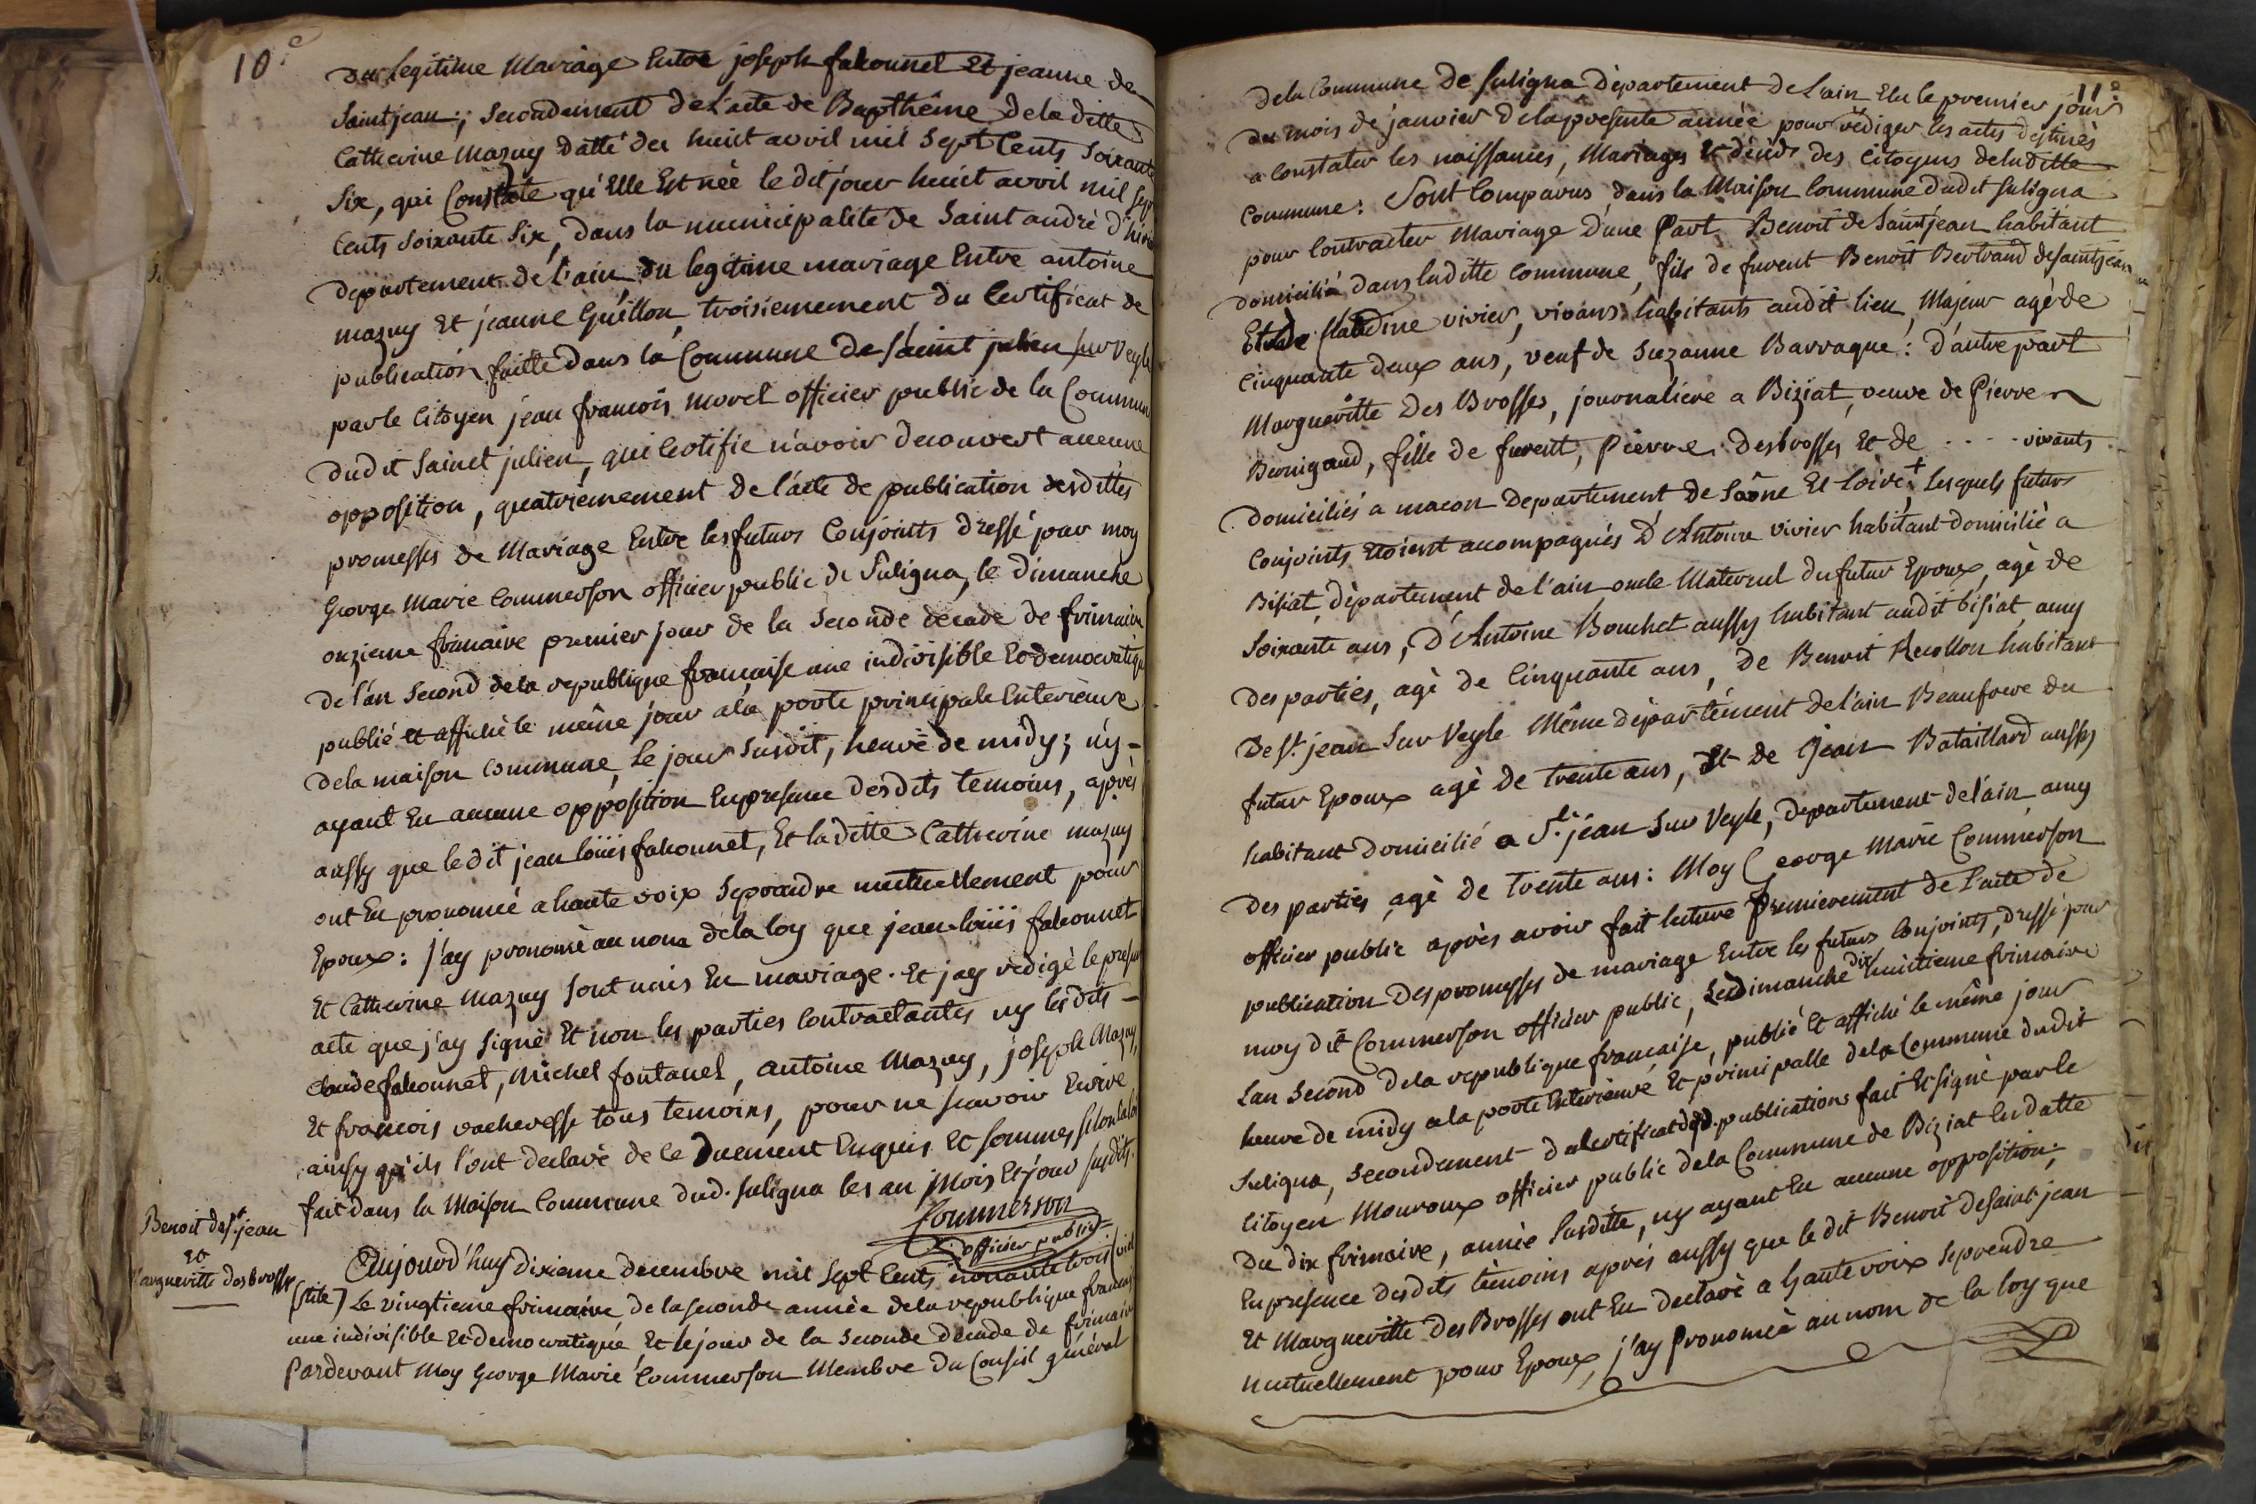 10.e
du legitime Mariage Entre joseph fakonnet Et jeanne de
Saintjean; Secondement de L'acte de Bapthême de la ditte
Catherine Mazuy datté du huit avril mil Sept Cents Soixante
Six, qui Constate qu'Elle Est née le dit jour huit avril mil sept
Cents Soixante Six, dans la municipalité de Saint andré d'huiria
departement de l'ain du legitime mariage Entre antoine
mazuy Et jeanne Guillon, troisiemement du Certificat de
publication faitte dans la Commune de Saint julien sur Veyle
par le Citoyen jean francois morel officier public de la Commune
dudit Sainct julien, qui Certifie n'avoir decouvert aucune
opposition, quatriemement de l'acte de publication desdittes
promesses de Mariage Entre les futurs Conjoints dressé par moy
George Marie Commerson officier public de Suligna, le Dimanche
onzieme frimaire premier jour de la Seconde decade de frimaire
de l'an Second de la republique francaise une indivisible Et democratique
publié et affiché le même jour a la porte principale Exterieure
de la maison Commune, le jour Susdit, heure de midy; n'y-
ayant Eu aucune opposition En presence desdits temoins, après
aussy que le dit jean loüis fakonnet, Et la ditte Catherine mazuy
ont Eu prononcé a haute voix Seprandre mutuellement pour
Epoux: j'ay prononcé au nom de la loy que jean-loüis fakonnet
Et Catherine Mazuy Sont unis En mariage. Et j'ay redigé le present
acte que j'ay Signé Et non les parties Contractantes ny lesdits -
claude fakonnet, Michel fontanel, antoine Mazuy, joseph Mazuy,
Et francois vacheresse tous temoins, pour ne scavoir Ecrire
ainsy qu'ils l'ont declaré de ce Duement Enquis Et sommés selon la loi
fait dans la Maison Commune dud. Suligna les an Mois Et jour susdits.
Commerson
officier public
Benoit de St. jean
Et
Margueritte desbrosses
Aujourd'huy dixieme decembre mil Sept Cents nonante trois (vieil
(stile) Le vingtieme frimaire de la seconde année de la republique francaise
une indivisible Et democratique Et le jour de la Seconde Decade de frimaire
Pardevant Moy George Marie Commerson Membre du Conseil général
11.e
de la Commune de Suligna Département de L'ain Elu le premier jour
du mois de janvier de la presente année pour rédiger les actes destinés
a Constater les naissances, Mariages Et décéds des Citoyens de la ditte
Commune: Sont Comparus, dans la Maison Commune dudit Suligna
pour Contracter Mariage d'une Part Benoit de Saintjean habitant
domicilié dans laditte Commune, fils de furent Benoît Bertrand desaintjean
Et de Claudine vivier, vivans habitants audit lieu, Majeur agé de
Cinquante deux ans, veuf de Suzanne Barraque: D'autre part
Margueritte Des Brosses, journaliere a Biziat, veuve de Pierre
Bernigaud, fille de furent, Pierre desbrosses Et de . . . . vivants
domiciliés a macon Departement de Saône Et Loire + Lesquels futurs
Conjoints Etoient acompagnés D'Antoine vivier habitant domicilié a
Bisiat, département de l'ain oncle Maternel du futur Epoux, agé de
Soixante ans, D'Antoine Bouchet aussy habitant audit bisiat, amy
des parties, agé de Cinquante ans, de Benoit Recollon habitant
De St. jean Sur Veyle Même département de l'ain Beaufrere du
futur Epoux agé de trente ans, Et de Jean Bataillard aussy
habitant domicilié a St. jean Sur Veyle, departement de l'ain amy
des parties agé de trente ans: Moy George Marie Commerson
officier public après avoir fait lecture Premierement de L'acte de
publication des promesses de mariage Entre les futurs Conjoints, dressé par
moy dit Commerson officier public, Ledimanche dix huitieme frimaire
Lan Second de la republique francaise, publié Et affiché le même jour
heure de midy a la porte Exterieure Et principalle de la Commune dudit
Suligna, Secondement du Certificat desd. publications fait Et signé par le
Citoyen Mouroux officier public de la Commune de Biziat En datte
Du dix frimaire, année susditte, ny ayant Eu aucune opposition;
En presence desdits témoins aprés aussy que le dit Benoit desaint-jean
Et Margueritte Des Brosses ont Eu declaré a haute voix seprendre
mutuellement pour Epoux, j'ay Prononcé au nom de la loy que